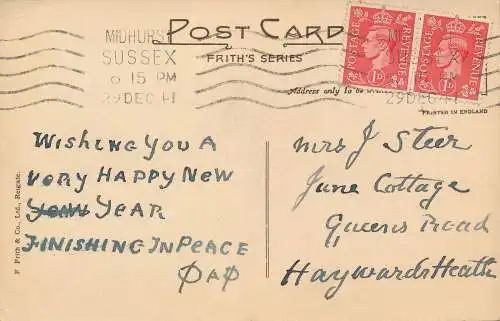 MIDHURST
SUSSEX
6 15 PM
29 DEC 41
POST CARD
FRITH'S SERIES
POSTAGE REVENUE
1D
POSTAGE REVENUE
1D
29 DEC 41
Address only to be
PRINTED IN ENGLAND
WISHING YOU A
VERY HAPPY NEW
YEAR
FINISHING IN PEACE
DAD
F. Frith & Co., Ltd., Reigate.
Mrs J Steer
June Cottage
Queens Road
Haywards Heath